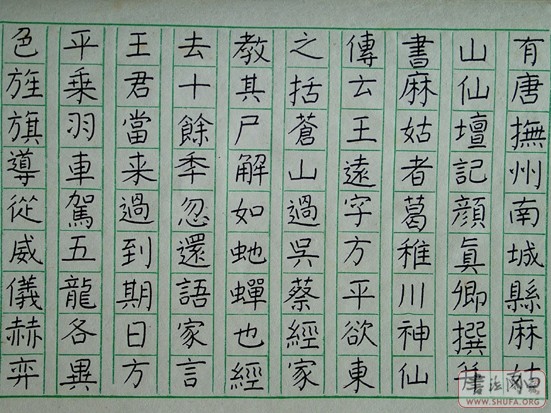 有唐撫州南城縣麻姑
山仙壇記顏眞卿撰
書麻姑者葛稚川神仙
傳云王遠字方平欲東
之括蒼山過吳蔡經家
教其尸解如虵蟬也經
去十餘秊忽還語家言
王君當来過到期日方
平乗羽車駕五龍各異
色旌旗導從威儀赫弈
WWW.SHUFA.ORG